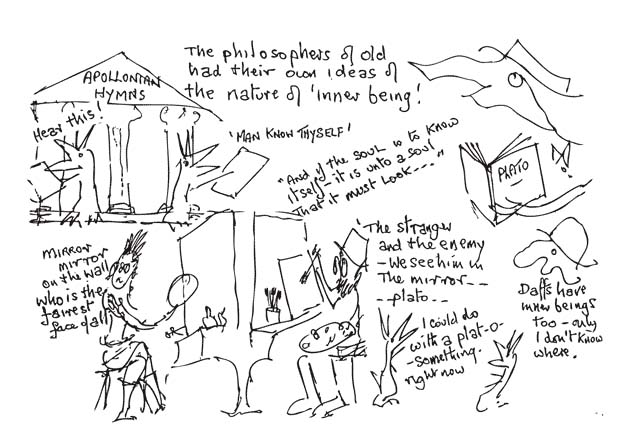 The philosophers of old
had their own ideas of
the nature of 'inner being!'
APOLLONIAN
HYMNS
Hear this!
'MAN KNOW THYSELF'
"And if the soul is to know
itself - it is unto a soul
that it must look---"
PLATO
MIRROR
MIRROR
ON the WALL
Who is the
fairest
face of all
'The stranger
and the enemy
- We see him in
The mirror - -
- - plato - -
I could do
with a plat-o-
- something.
right now
Daffs have
inner beings
too - only
I don't know
where.